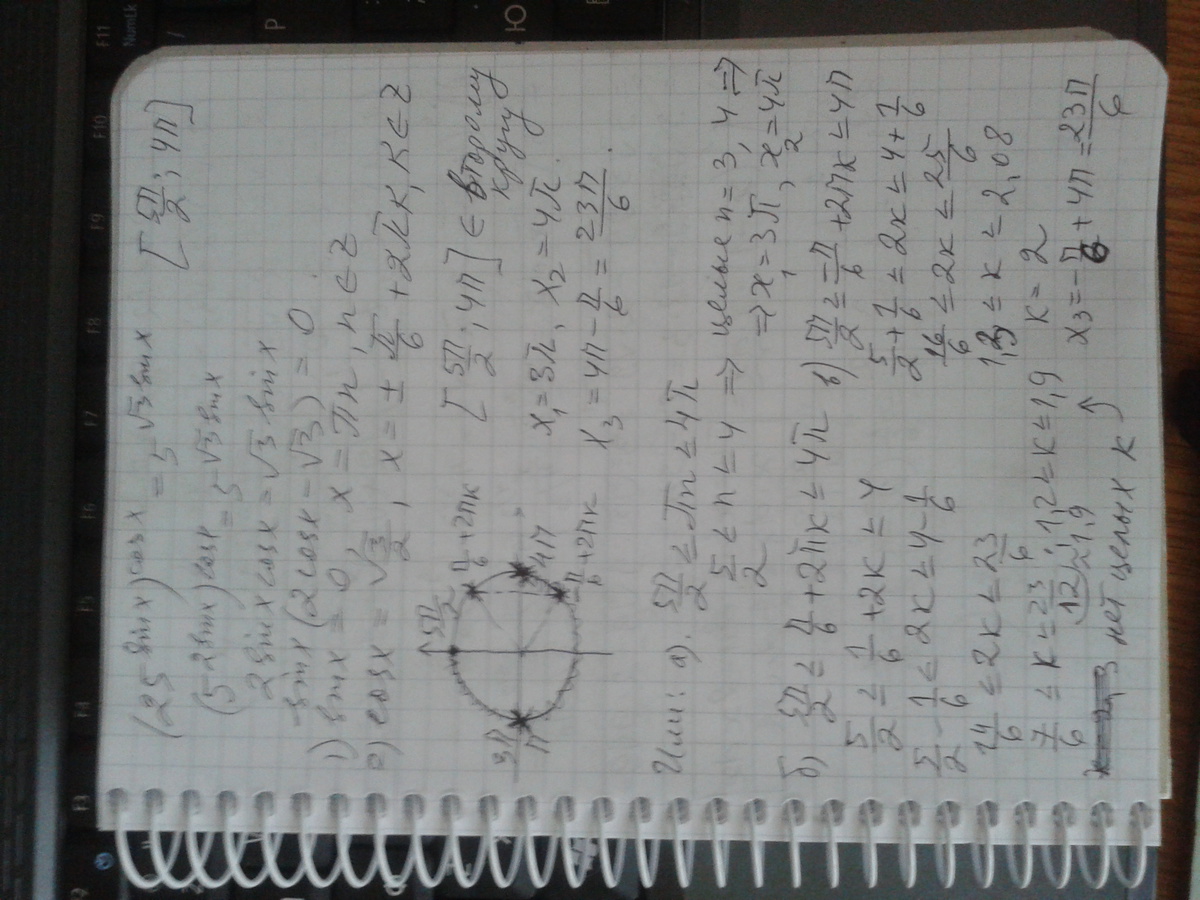 (25^sin x)^cos x = 5^√3 sin x [5π/2; 4π]
(5^2 sin x)^cos x = 5^√3 sin x
2 sin x cos x = √3 sin x
sin x (2 cos x - √3) = 0
1) sin x = 0, x = πn, n ∈ Z
2) cos x = √3/2, x = ± π/6 + 2πk, k ∈ Z
5π/2
π/6 + 2πk
3π
π
4π
-π/6 + 2πk
[5π/2; 4π] ∈ второму кругу
x₁ = 3π, x₂ = 4π.
x₃ = 4π - π/6 = 23π/6.
Или: а). 5π/2 ≤ πn ≤ 4π
5/2 ≤ n ≤ 4 ⇒ целые n = 3, 4 ⇒
⇒ x₁ = 3π, x₂ = 4π
б) 5π/2 ≤ π/6 + 2πk ≤ 4π
5/2 ≤ 1/6 + 2k ≤ 4
5/2 - 1/6 ≤ 2k ≤ 4 - 1/6
14/6 ≤ 2k ≤ 23/6
7/6 ≤ k ≤ 23/12; 1,2 ≤ k ≤ 1,9
1,9
нет целых k
в) 5π/2 ≤ -π/6 + 2πk ≤ 4π
5/2 + 1/6 ≤ 2k ≤ 4 + 1/6
16/6 ≤ 2k ≤ 25/6
1,3 ≤ k ≤ 2,08
k = 2
x₃ = -π/6 + 4π = 23π/6
F11
NumLk
F10
F9
F8
F7
F6
F5
F4
F3
Р
Ю